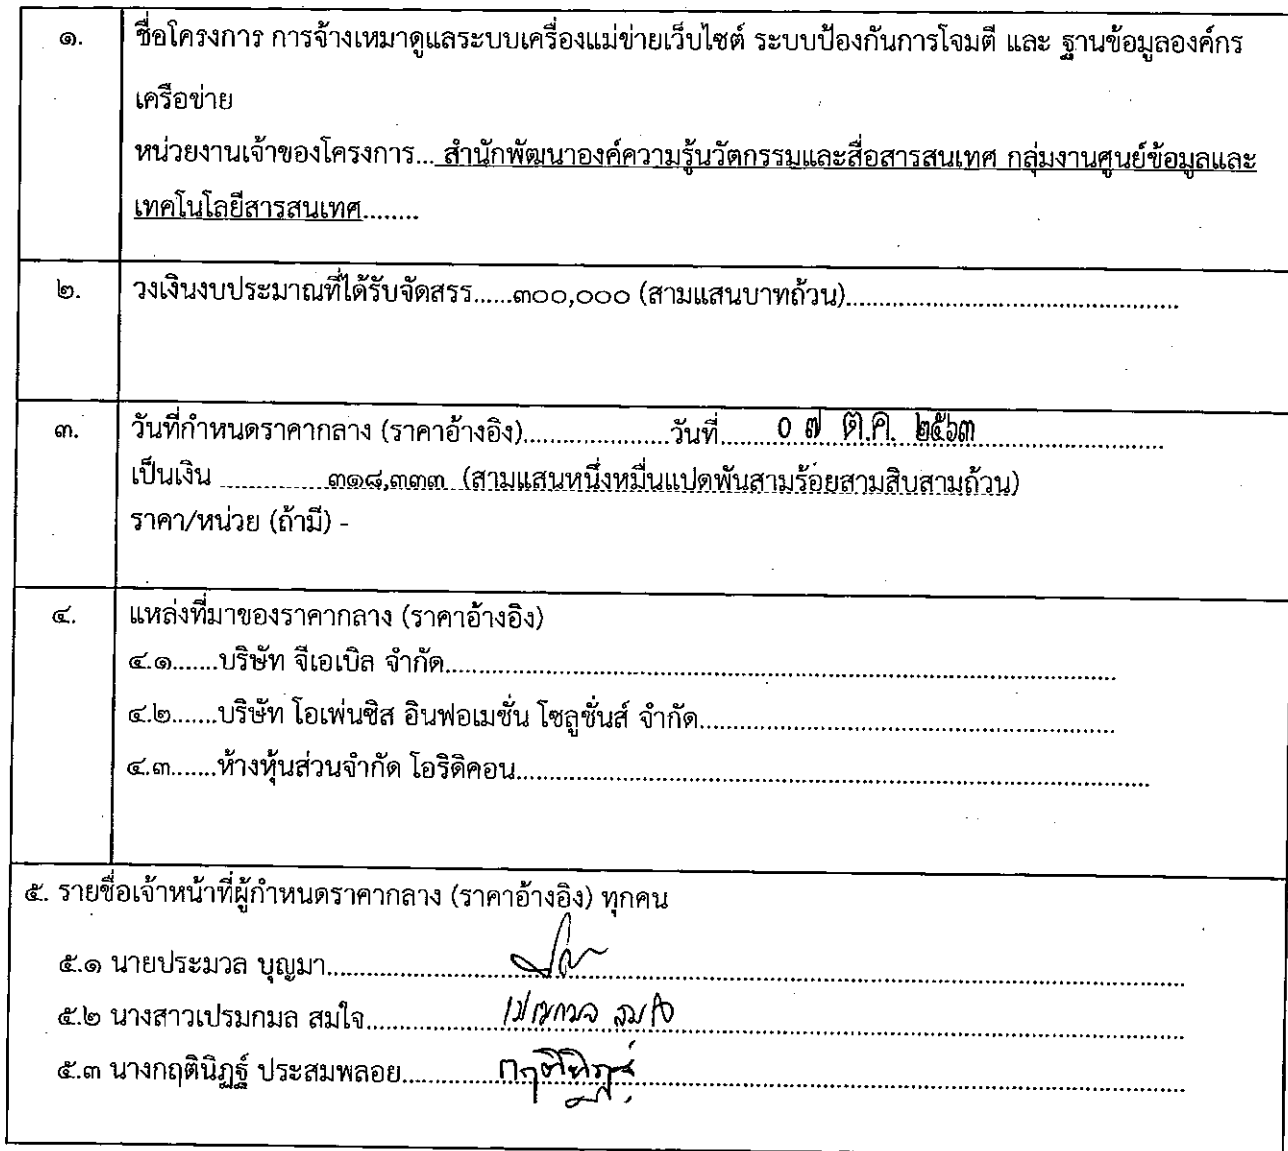 ๑. ชื่อโครงการ การจ้างเหมาดูแลระบบเครื่องแม่ข่ายเว็บไซต์ ระบบป้องกันการโจมตี และ ฐานข้อมูลองค์กร
เครือข่าย
หน่วยงานเจ้าของโครงการ... สำนักพัฒนาองค์ความรู้นวัตกรรมและสื่อสารสนเทศ กลุ่มงานศูนย์ข้อมูลและ
เทคโนโลยีสารสนเทศ........
๒. วงเงินงบประมาณที่ได้รับจัดสรร......๓๐๐,๐๐๐ (สามแสนบาทถ้วน)................................................
๓. วันที่กำหนดราคากลาง (ราคาอ้างอิง).....................วันที่....... ๐ ๗ ต.ค. ๒๕๖๓
เป็นเงิน ...............๓๑๘,๓๓๓ (สามแสนหนึ่งหมื่นแปดพันสามร้อยสามสิบสามถ้วน)
ราคา/หน่วย (ถ้ามี) -
๔. แหล่งที่มาของราคากลาง (ราคาอ้างอิง)
๔.๑.......บริษัท จีเอเบิล จำกัด................................................
๔.๒.......บริษัท โอเพ่นซิส อินฟอเมชั่น โซลูชั่นส์ จำกัด................................................
๔.๓.......ห้างหุ้นส่วนจำกัด โอริดิคอน................................................
๕. รายชื่อเจ้าหน้าที่ผู้กำหนดราคากลาง (ราคาอ้างอิง) ทุกคน
๕.๑ นายประมวล บุญมา................................................
๕.๒ นางสาวเปรมกมล สมใจ................................................
๕.๓ นางกฤตินิฏฐ์ ประสมพลอย................................................